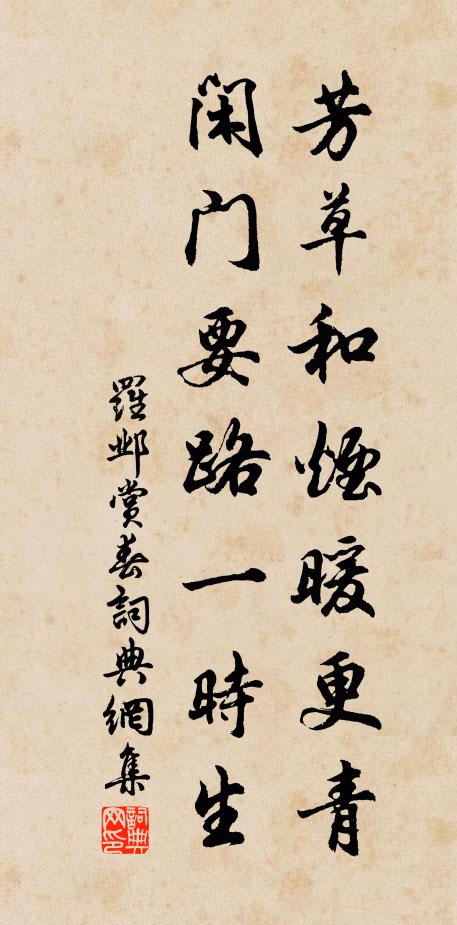 芳草和煙暖更青
閑門要路一時生
羅邺賞春詞典網集
詞典网印